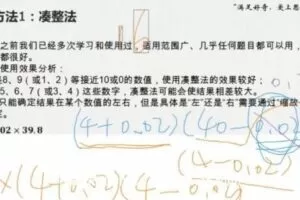 "满足好奇,爱上思
方法1:凑整法
之前我们已经多次学习和使用过,适用范围广,几乎任何题目都可以用,
都很好。
使用效果分析:
是8、9(或1、2)等接近10或0的数值,使用凑整法的效果较好;
5、6、7(或3、4)这些数字,凑整法可能会使结果相差较大。
只能确定结果在某个数值的左右,但是具体是"左"还是"右"需要通过"缩放
02×39.8
(4+0.02)(40-0.02
(4-0.02)
×(4+0.02)(4-0.02